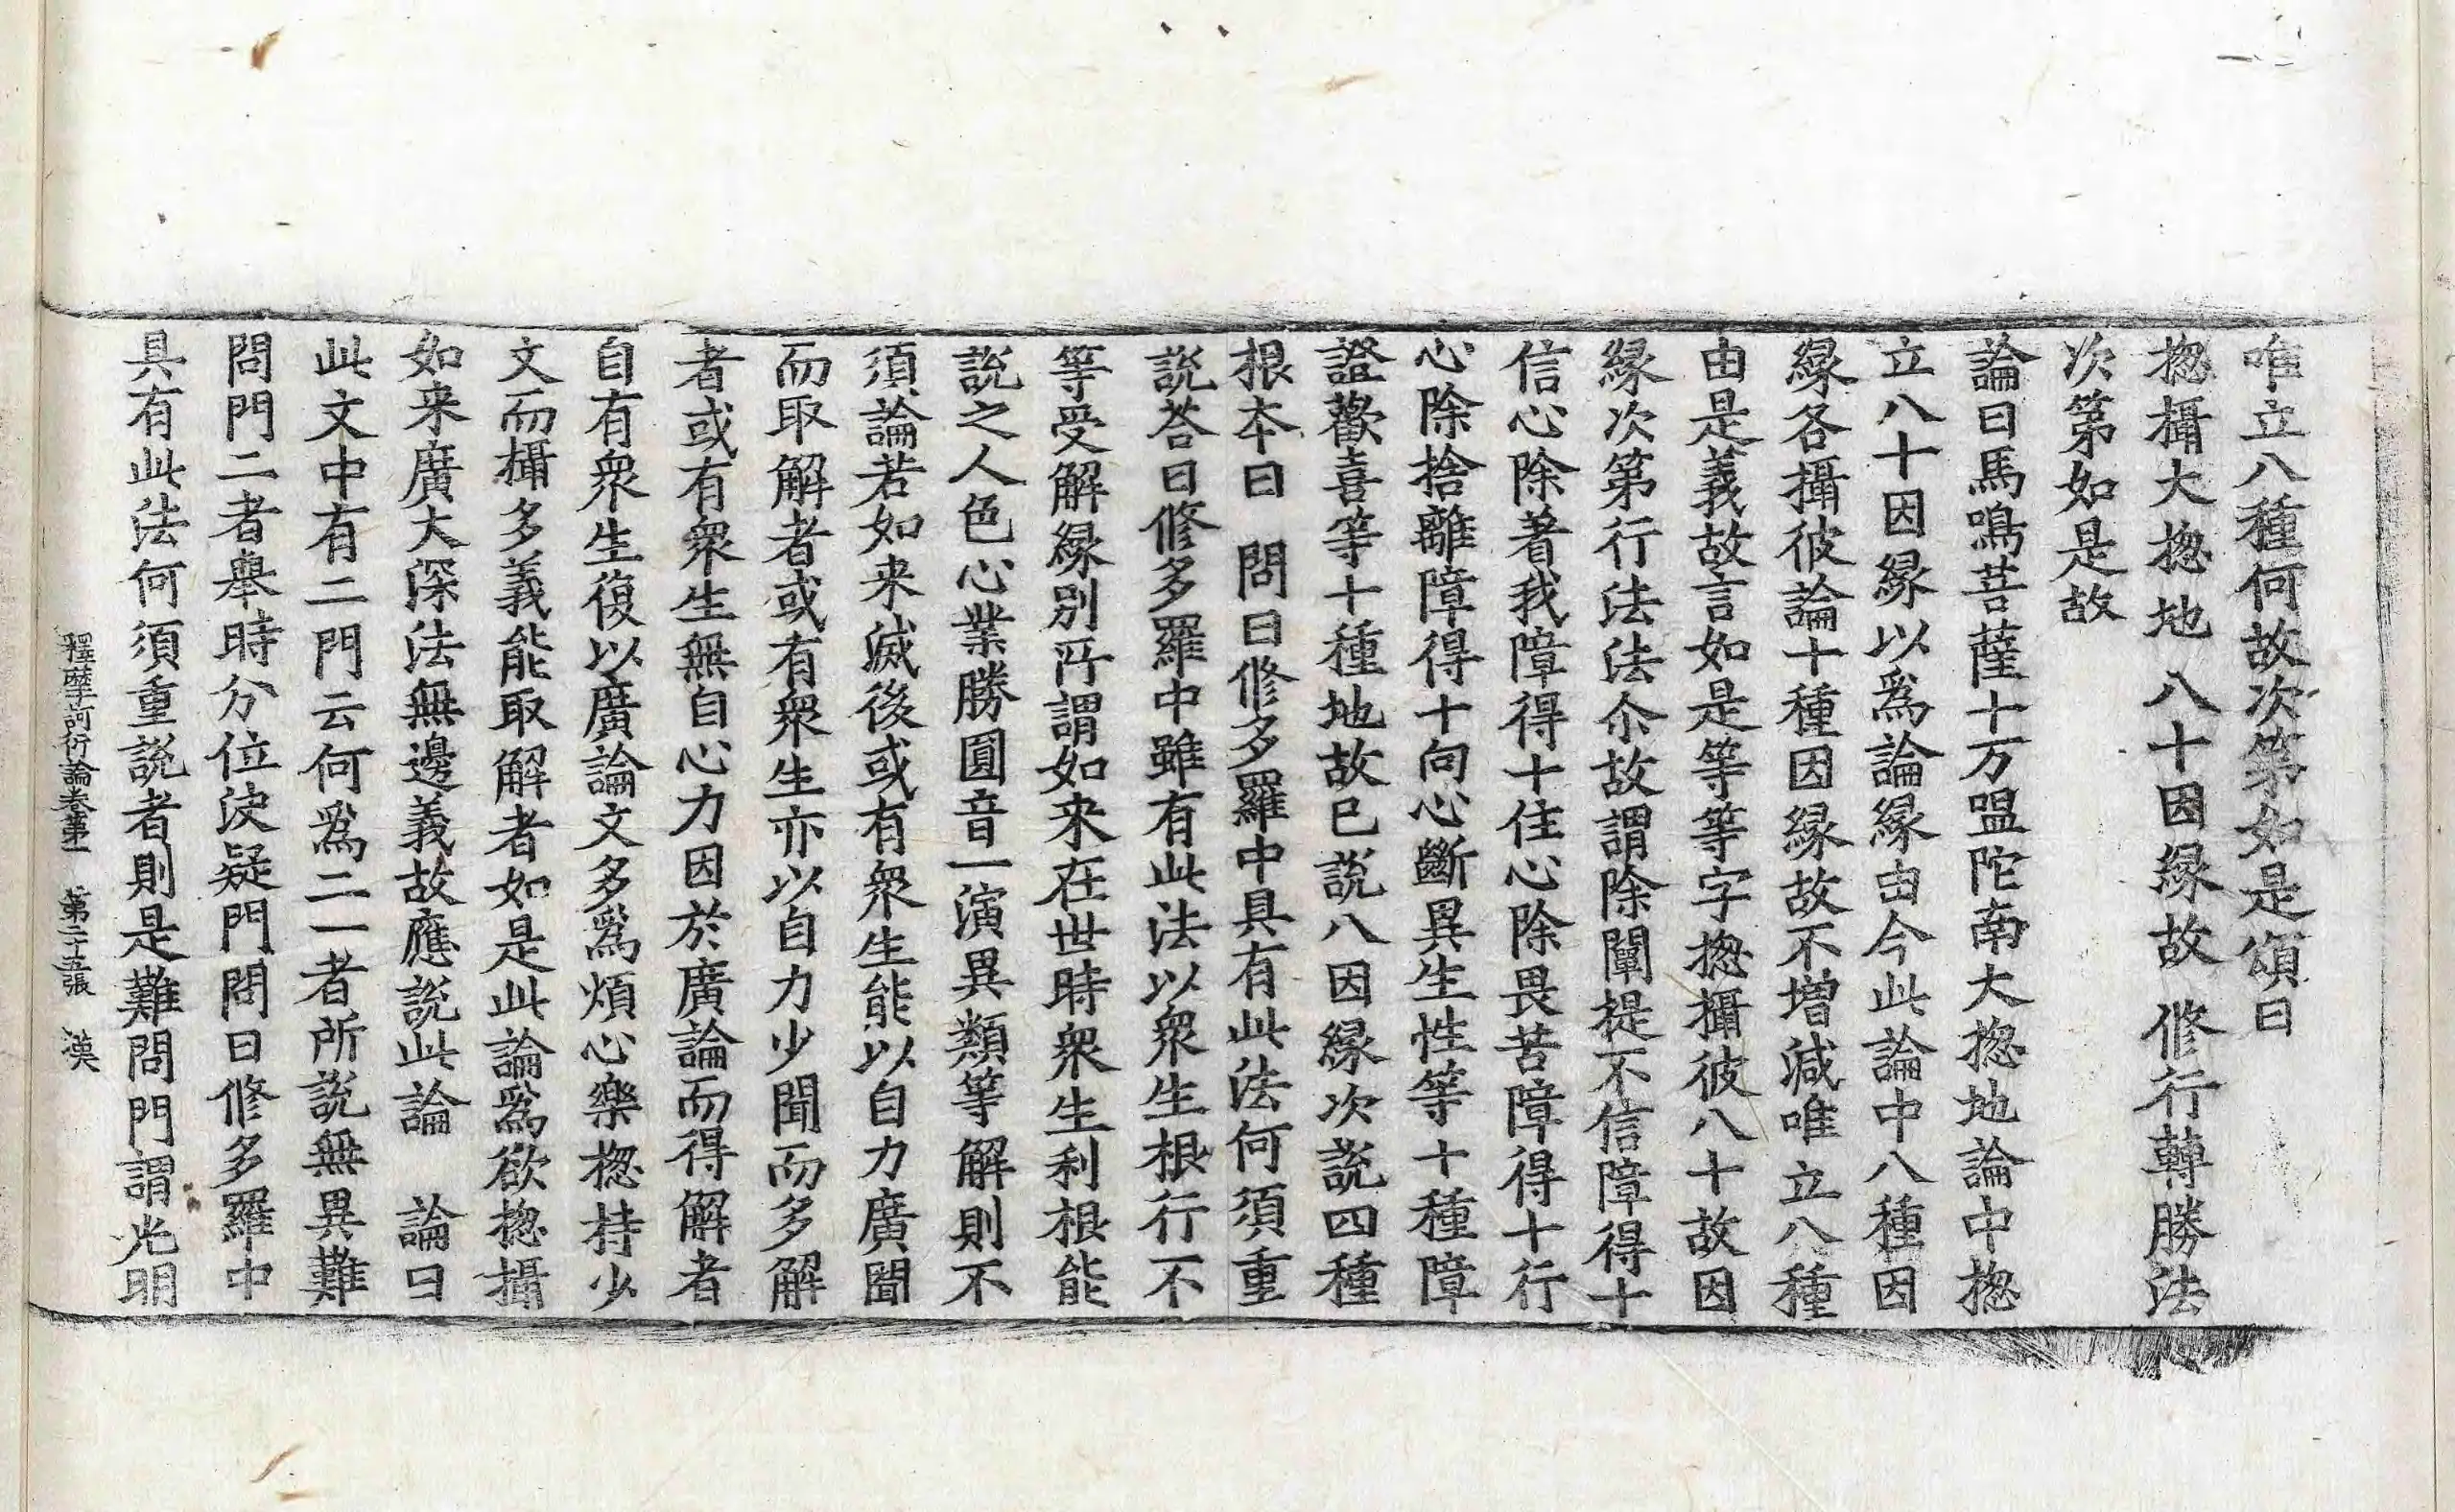 唯立八種何故次第如是頌曰
揔攝大揔地 八十因縁故 修行轉勝法
次第如是故
論曰馬鳴菩薩十万䀉陀南大揔地論中揔
立八十因縁以爲論縁由今此論中八種因
縁各攝彼論十種因縁故不增減唯立八種
由是義故言如是等等字揔攝彼八十故因
縁次第行法法尒故謂除闡提不信障得十
信心除著我障得十住心除畏苦障得十行
心除捨離障得十向心斷異生性等十種障
證歡喜等十種地故已說八因縁次說四種
根本曰 問曰修多羅中具有此法何須重
說荅曰修多羅中雖有此法以衆生根行不
等受解縁別所謂如来在世時衆生利根能
說之人色心業勝圓音一演異類等解則不
須論若如来滅後或有衆生能以自力廣聞
而取解者或有衆生亦以自力少聞而多解
者或有衆生無自心力因於廣論而得解者
自有衆生復以廣論文多爲煩心樂揔持少
文而攝多義能取解者如是此論爲欲揔攝
如来廣大深法無邊義故應說此論 論曰
此文中有二門云何爲二一者所說無異難
問門二者舉時分位決疑門問曰修多羅中
具有此法何須重說者則是難問門謂光明
釋摩訶衍論卷第一 第二十五張 漢